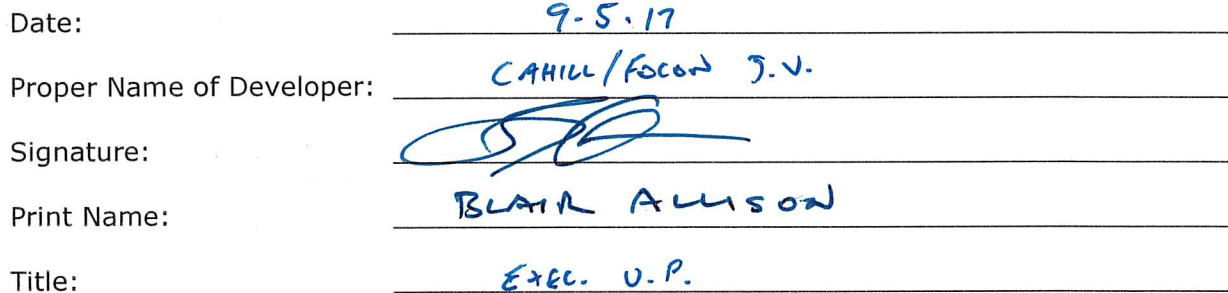 Date: 9-5.17
Proper Name of Developer: CAHILL/FOCON J.V.
Signature:
Print Name: BLAIR ALLISON
Title: EXEC. V.P.